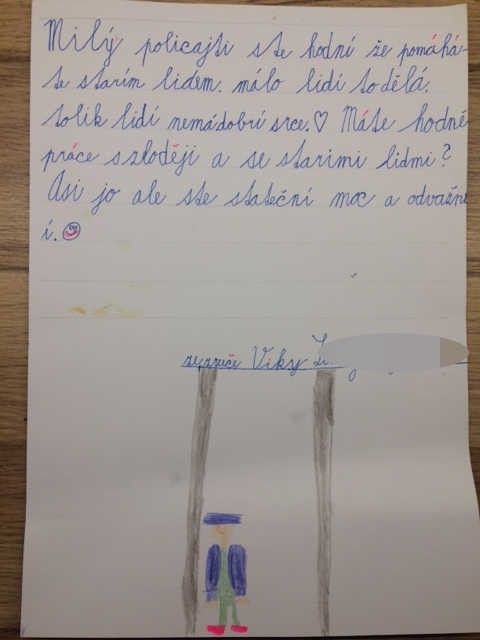 Milý policajti ste hodní že pomáhá-
te starím lidem. málo lidí to dělá.
tolik lidí nemá dobrí srce.♡ Máte hodně
práce s zloději a se starimi lidmi?
Asi jo ale ste stateční moc a odvážn
í.
Viky